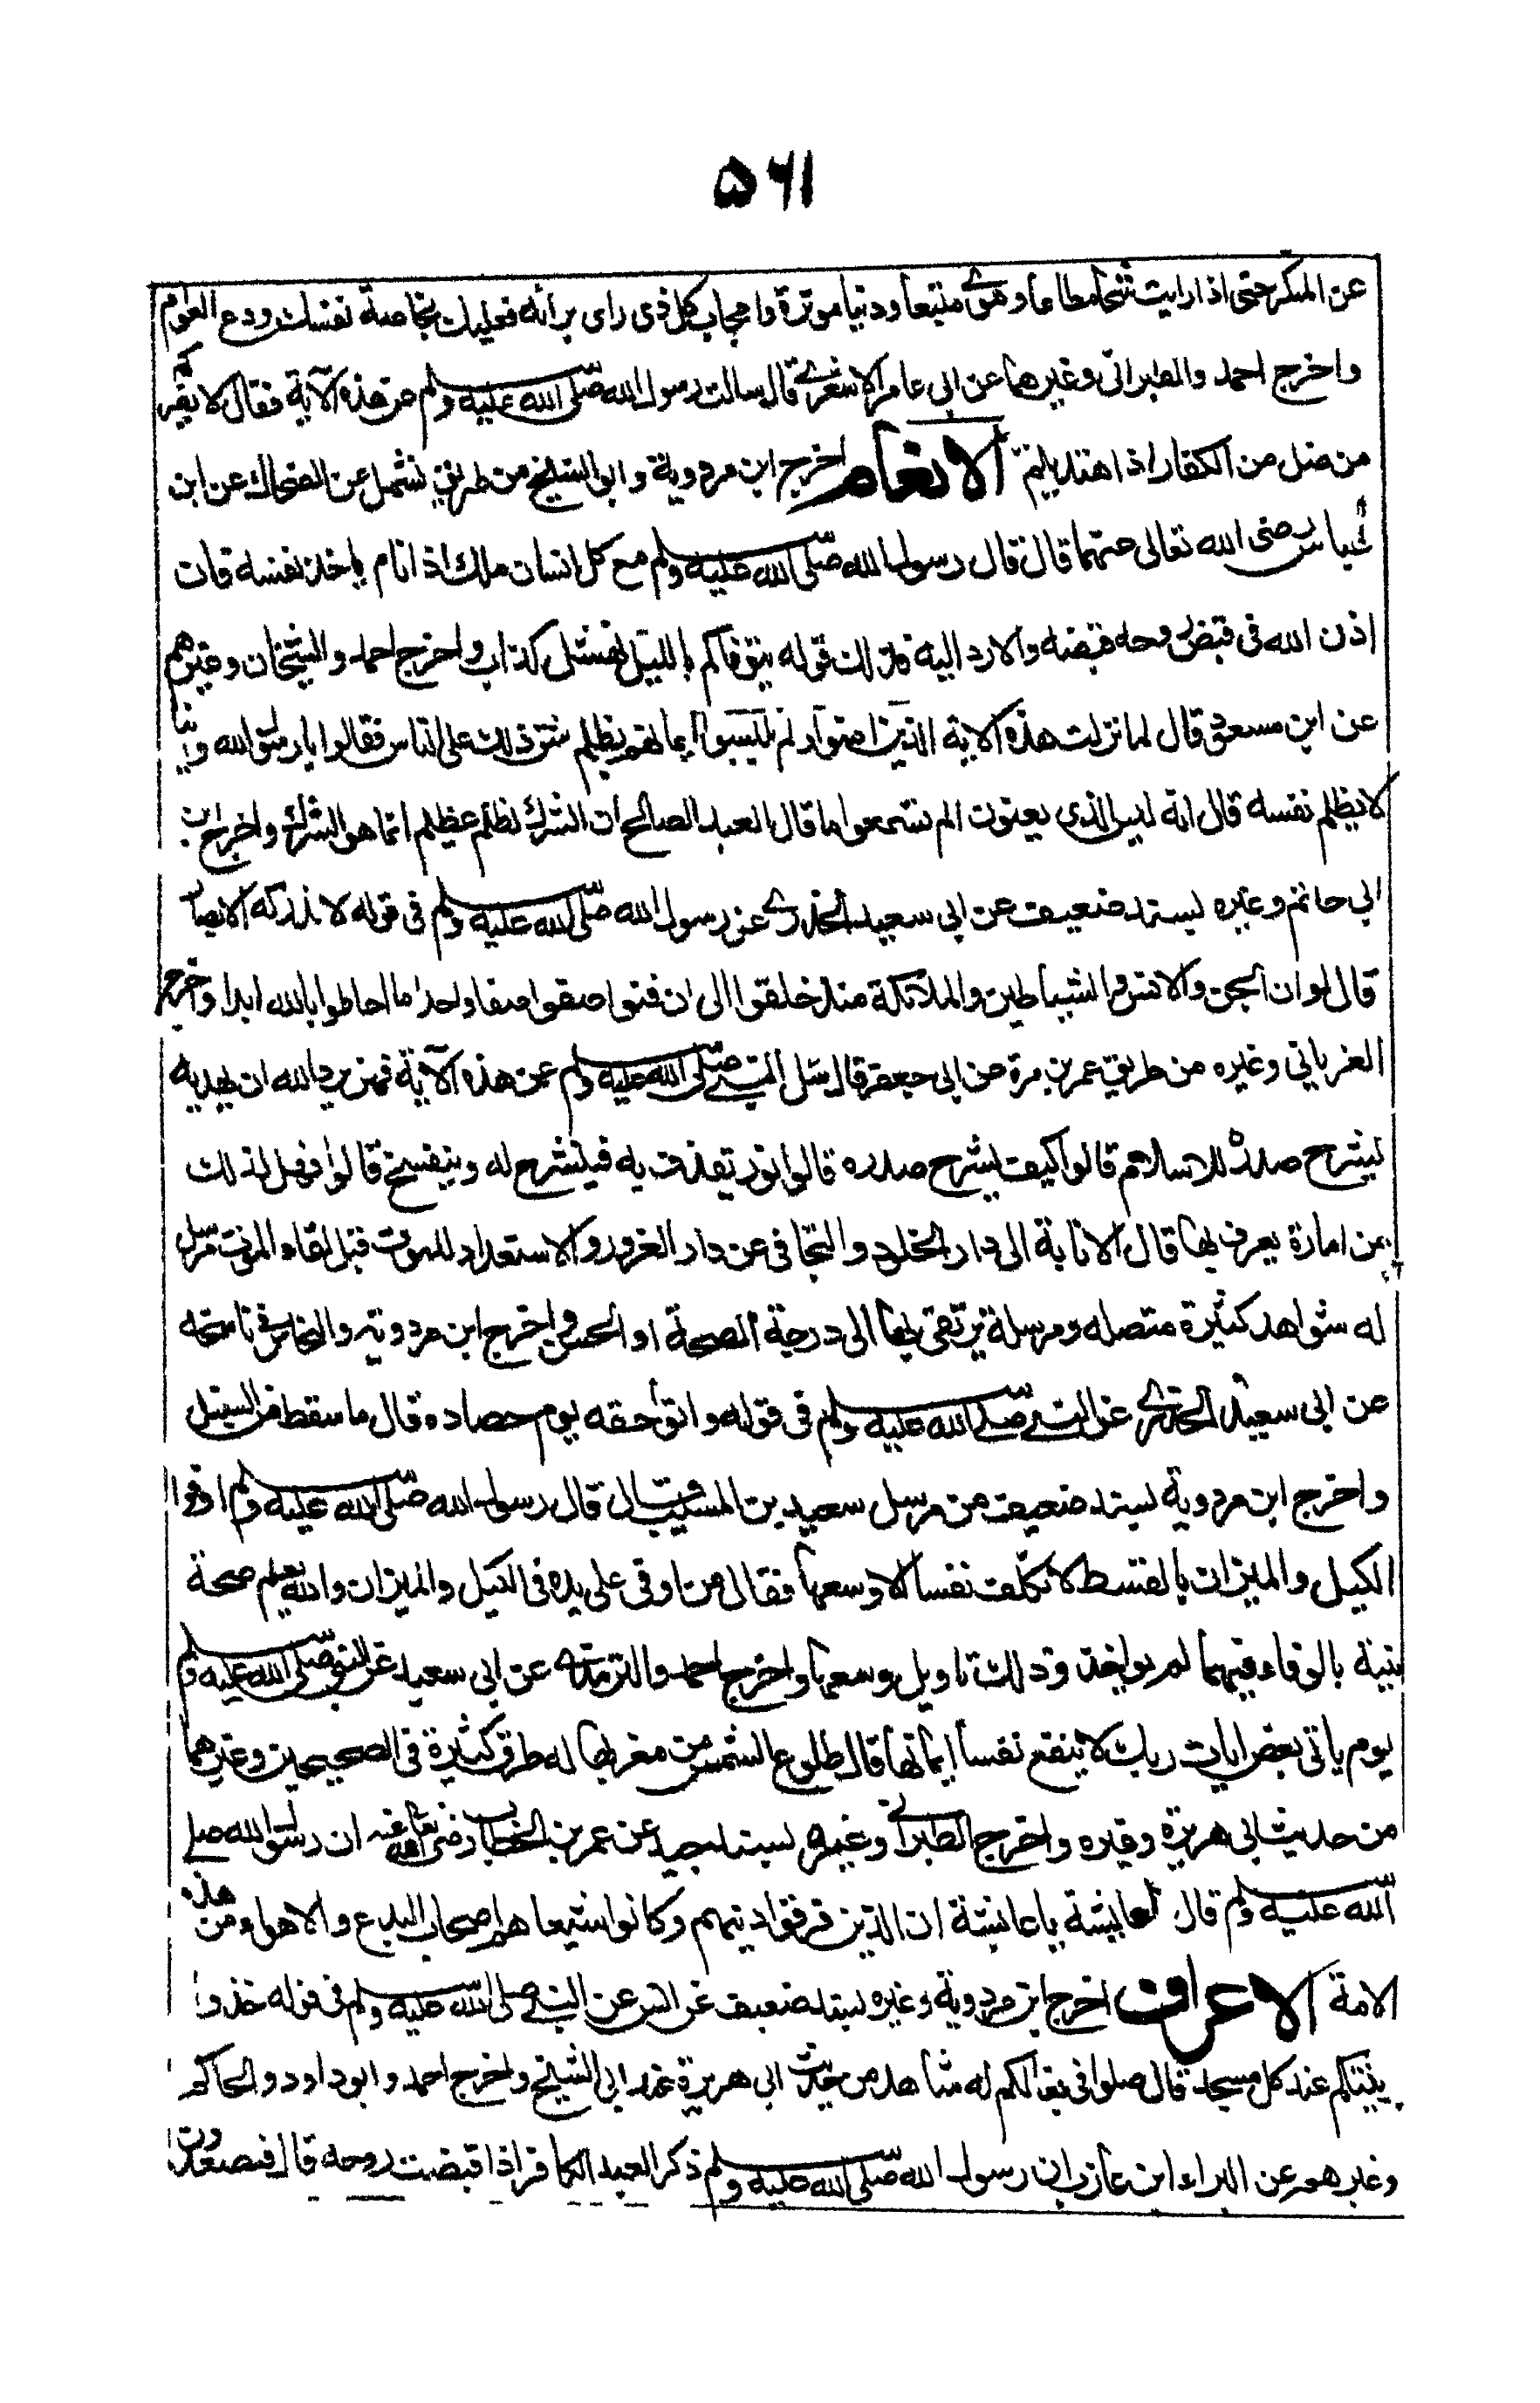 ۵۶۱
عن المنكر حتى اذا رايت شحا مطاعا وهوى متبعا ودنيا موثرة واعجاب كل ذى راى برأيه فعليك بخاصة نفسك ودع العوام
واخرج احمد والطبرانى وغيرهما عن ابى عامر الاشعرى قال سالت رسول الله صلى الله عليه وسلم عن هذه الآية فقال لا يضركم
من ضل من الكفار اذا اهتديتم الانعام اخرج ابن مردوية وابو الشيخ من طريق نشهل عن الضحاك عن ابن
عباس رضى الله تعالى عنهما قال قال رسول الله صلى الله عليه وسلم مع كل انسان ملك اذا نام ياخذ نفسه فان
اذن الله فى قبض روحه قبضه والا رد اليه فذلك قوله يتوفاكم بالليل نهشل كذاب واخرج احمد والشيخان وغيرهم
عن ابن مسعود قال لما نزلت هذه الاية الذين امنوا ولم يلبسوا ايمانهم بظلم شق ذلك على الناس فقالوا يا رسول الله واينا
لا يظلم نفسه قال انه ليس الذى يعنون الم تسمعوا ما قال العبد الصالح ان الشرك لظلم عظيم انما هو الشرك واخرج ابن
ابى حاتم وغيره بسند ضعيف عن ابى سعيد الخدرى عن رسول الله صلى الله عليه وسلم فى قوله لا تدركه الابصار
قال لو ان الجن والانس والشياطين والملائكة منذ خلقوا الى ان فنوا صفوا صفا واحدا ما احاطوا بالله ابدا واخرج
الفريابى وغيره من طريق عمر بن مرة عن ابى جعفر قال سئل النبى صلى الله عليه وسلم عن هذه الآية فمن يرد الله ان يهديه
يشرح صدره للاسلام قالوا كيف يشرح صدره قالوا نور يقذف به فينشرح له وينفسخ قالوا فهل لذلك
من امارة يعرف بها قال الانابة الى دار الخلود والتجافى عن دار الغرور والاستعداد للموت قبل لقاء الموت مرسل
له شواهد كثيرة متصله ومرسلة يرتقى بها الى درجة الصحة او الحسن واخرج ابن مردوية والنحاس فى ناسخه
عن ابى سعيد الخدرى عن النبى صلى الله عليه وسلم فى قوله واتوا حقه يوم حصاده قال ما سقط من السنبل
واخرج ابن مردوية بسند ضعيف من مرسل سعيد بن المسيب قال قال رسول الله صلى الله عليه وسلم اوفوا
الكيل والميزان بالقسط لا نكلف نفسا الا وسعها فقال من اوفى على يده فى الكيل والميزان والله يعلم صحة
نيته بالوفاء فيهما لم يواخذ وذلك تاويل وسعها واخرج احمد والترمذى عن ابى سعيد عن النبى صلى الله عليه وسلم
يوم ياتى بعض ايات ربك لا ينفع نفسا ايمانها قال طلوع الشمس من مغربها له طرق كثيرة فى الصحيحين وغيرهما
من حديث ابى هريرة وغيره واخرج الطبرانى وغيره بسند جيد عن عمر بن الخطاب رضى الله تعالى عنه ان رسول الله صلى
الله عليه وسلم قال لعايشة يا عايشة ان الذين فرقوا دينهم وكانوا شيعا هم اصحاب البدع والاهواء من هذه
الامة الاعراف اخرج ابن مردوية وغيره بسند ضعيف عن انس عن النبى صلى الله عليه وسلم فى قوله خذوا
زينتكم عند كل مسجد قال صلوا فى نعالكم له شاهد من حديث ابى هريرة عند ابى الشيخ واخرج احمد وابو داود والحاكم
وغيرهم عن البراء ابن عازب ان رسول الله صلى الله عليه وسلم ذكر العبد الكافر اذا قبضت روحه قال فيصعدون